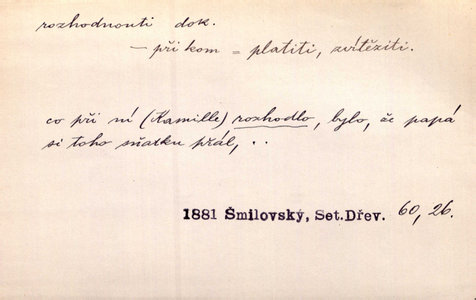 rozhodnouti dok.
— při kom = platiti, zvítěziti.
co při ní (Kamille) rozhodlo, bylo, že papá
si toho sňatku přál, ..
1881 Šmilovský, Set.Dřev. 60, 26.